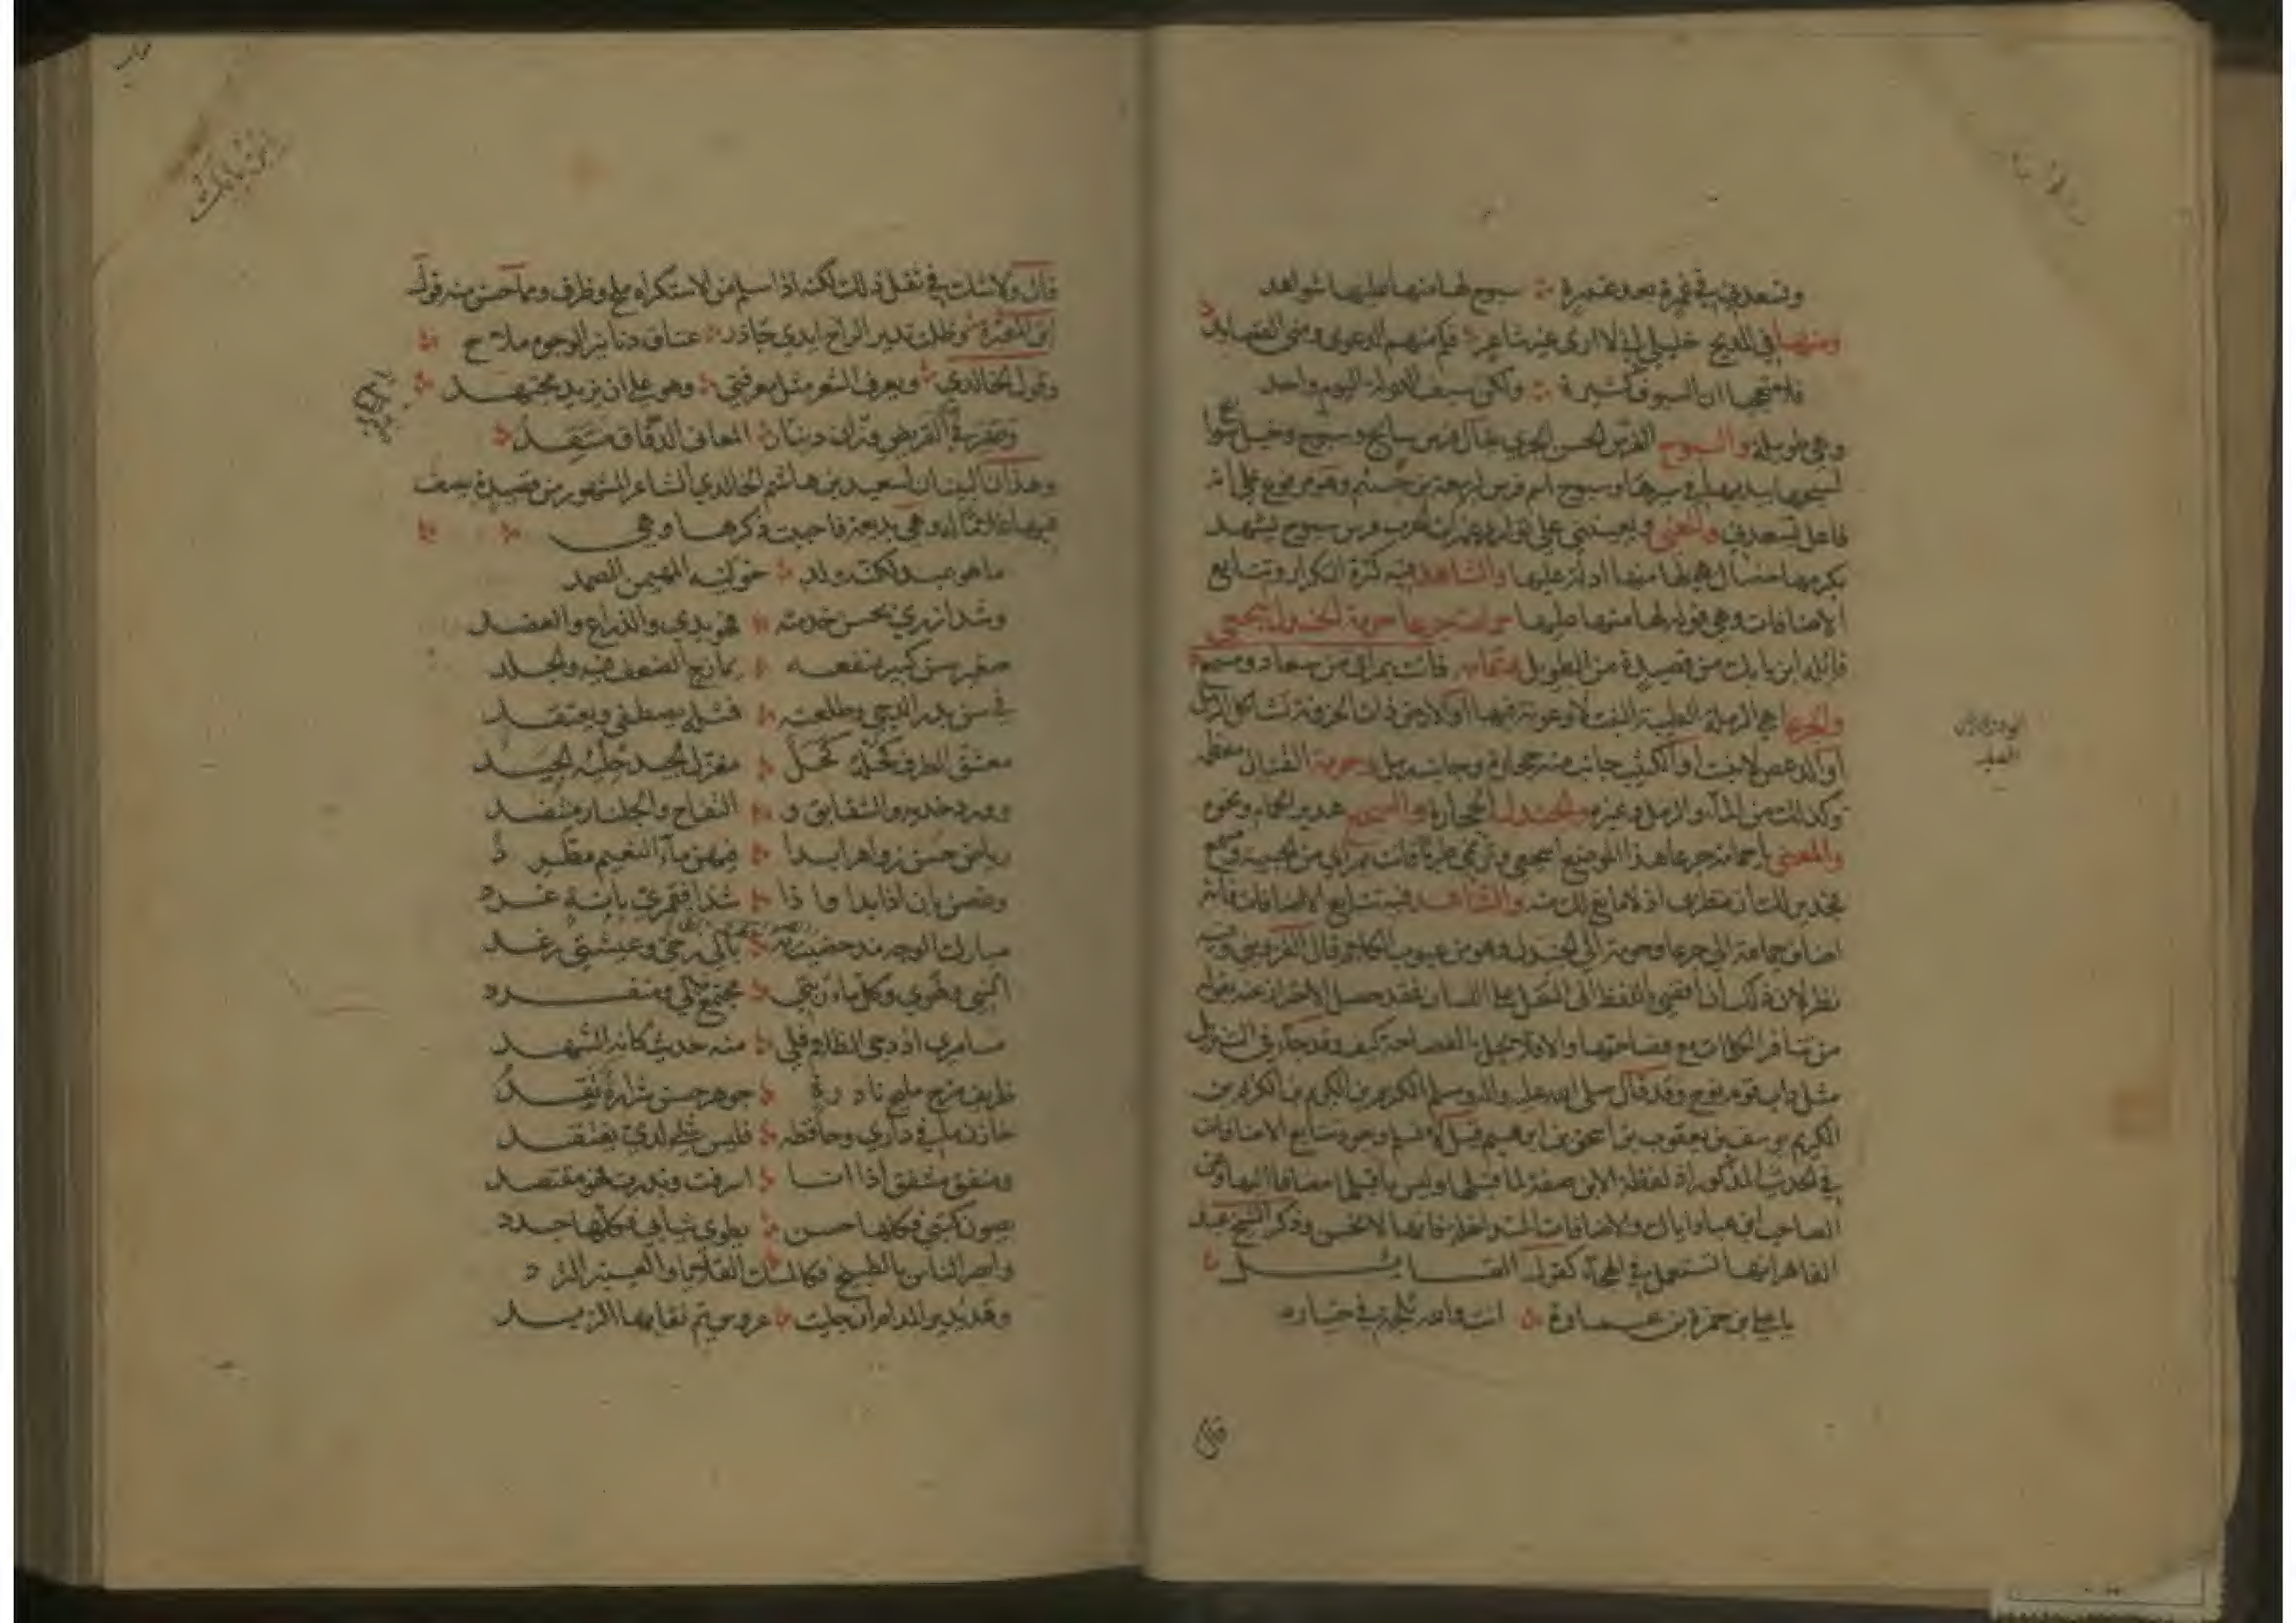 وتسعدني في غمرة بعد غمرة سبوح لها منها عليها شواهد
ومنها في المديح خليلي اني لا ارى غير شاعر فكم منهم الدعوى ومني القصايد
فلا تعجبا ان السيوف كثيرة ولكن سيف الدولة اليوم واحد
وهي طويلة والسبوح الفرس الحسن الجري يقال فرس سابح وسبوح وخيل سوابح
لسبحها بيديها في سيرها وسبوح اسم فرس ربيعة بن جشم وهو مرفوع على انه
فاعل تسعدني والمعنى ويعينني على توارد غمرات الحرب فرس سبوح يشهد
بكرمها خصال هي لها منها ادلة عليها والشاهد فيه كثرة التكرار وتتابع
الاضافات وهي قوله لها منها عليها حمامة جرعا حومة الجندل اسجعي
قائله ابن بابك من قصيدة من الطويل وتمامه فانت بمراى من سعاد ومسمع
والجرعا هي الرملة الطيبة المنبت لا وعوثة فيها او الارض ذات الحزونة تشاكل الرمل
او الدعص لا ينبت او الكثيب جانب منه حجارة وجانب رمل وحومة القتال معظمه
وكذلك من الماء والرمل وغيره والجندل الحجارة والسجع هدير الحمام ونحوه
والمعنى يا حمامة جرعا هذا الموضع اسجعي وترنمي طربا فانت بمراى من الحبيبة ومسمع
فجدير لك ان تطربي اذ لا مانع لك منه والشاهد فيه تتابع الاضافات فانه
اضاف حمامة الى جرعا وحومة الى الجندل وهو من عيوب الكلام قال القزويني وفيه
نظر لان ذلك ان افضى باللفظ الى الثقل على اللسان فقد حصل الاحتراز عنه بقوله
من تنافر الكلمات مع فصاحتها والا فلا يخل بالفصاحة كيف وقد جاء في التنزيل
مثل داب قوم نوح وقد قال صلى الله عليه واله وسلم الكريم بن الكريم بن الكريم بن
الكريم يوسف بن يعقوب بن اسحق بن ابرهيم قيل لا نسلم وجود تتابع الاضافات
في الحديث المذكور اذ لفظة الابن صفة لما قبلها وليس ما قبلها مضافا اليها وعن
الصاحب ابن عباد اياك والاضافات المتداخلة فانها لا تحسن وذكر الشيخ عبد
القاهر انها تستعمل في الهجاء كقول القايل
يا علي بن حمزة بن عمارة انت والله ثلجة في خياره
قال
ابن بابك
قال ولا شك في ثقل ذلك لكنه اذا سلم من الاستكراه ملح وظرف ومما حسن منه قول
ابن المعتز وظلت تدير الراح ايدي جاذر عتاق دنانير الوجوه ملاح
وقول الخالدي ويعرف الشعر مثل معرفتي وهو على ان يزيد مجتهد
وصيرفي القريض وزان دينار المعاني الدقاق منتقد
وهذان البيتان لسعيد بن هاشم الخالدي الشاعر المشهور من قصيدة يصف
فيها غلاما له وهي بديعة فاحببت ذكرها وهي
ما هو عبد لكنه ولد خولنيه المهيمن الصمد
وشد ازري بحسن خدمته فهو يدي والذراع والعضد
صغير سن كبير منفعة تمازج الضعف فيه والجلد
في سن بدر الدجى وطلعته فمثله يصطفى ويعتقد
معشق الطرف كحله كحل مغزل الجيد حليه الجيد
وورد خديه والشقايق و التفاح والجلنار منتضد
رياض حسن زواهر ابدا فيهن ماء النعيم مطرد
وغصن بان اذا بدا واذا شدا فقمري بانة غرد
مبارك الوجه مذ حضيت به بالي رخي وعيشتي رغد
انسي ولهوي وكل ماربتي مجتمع لي ومنفرد
مسامري اذ دجى الظلام فلي منه حديث كانه الشهد
ظريف مزح مليح نادرة جوهر حسن شراره يقد
خازن ما في داري وحافظه فليس شي لدي يفتقد
ومنفق مشفق اذا انا اسرفت وبذرت فهو مقتصد
يصون كتبي فكلها حسن يطوي ثيابي فكلها جدد
وابصر الناس بالطبيخ فكالمسك القلايا والعنبر الثرد
وقد يدير المدام ان جليت عروس يتم نقابها الزبد